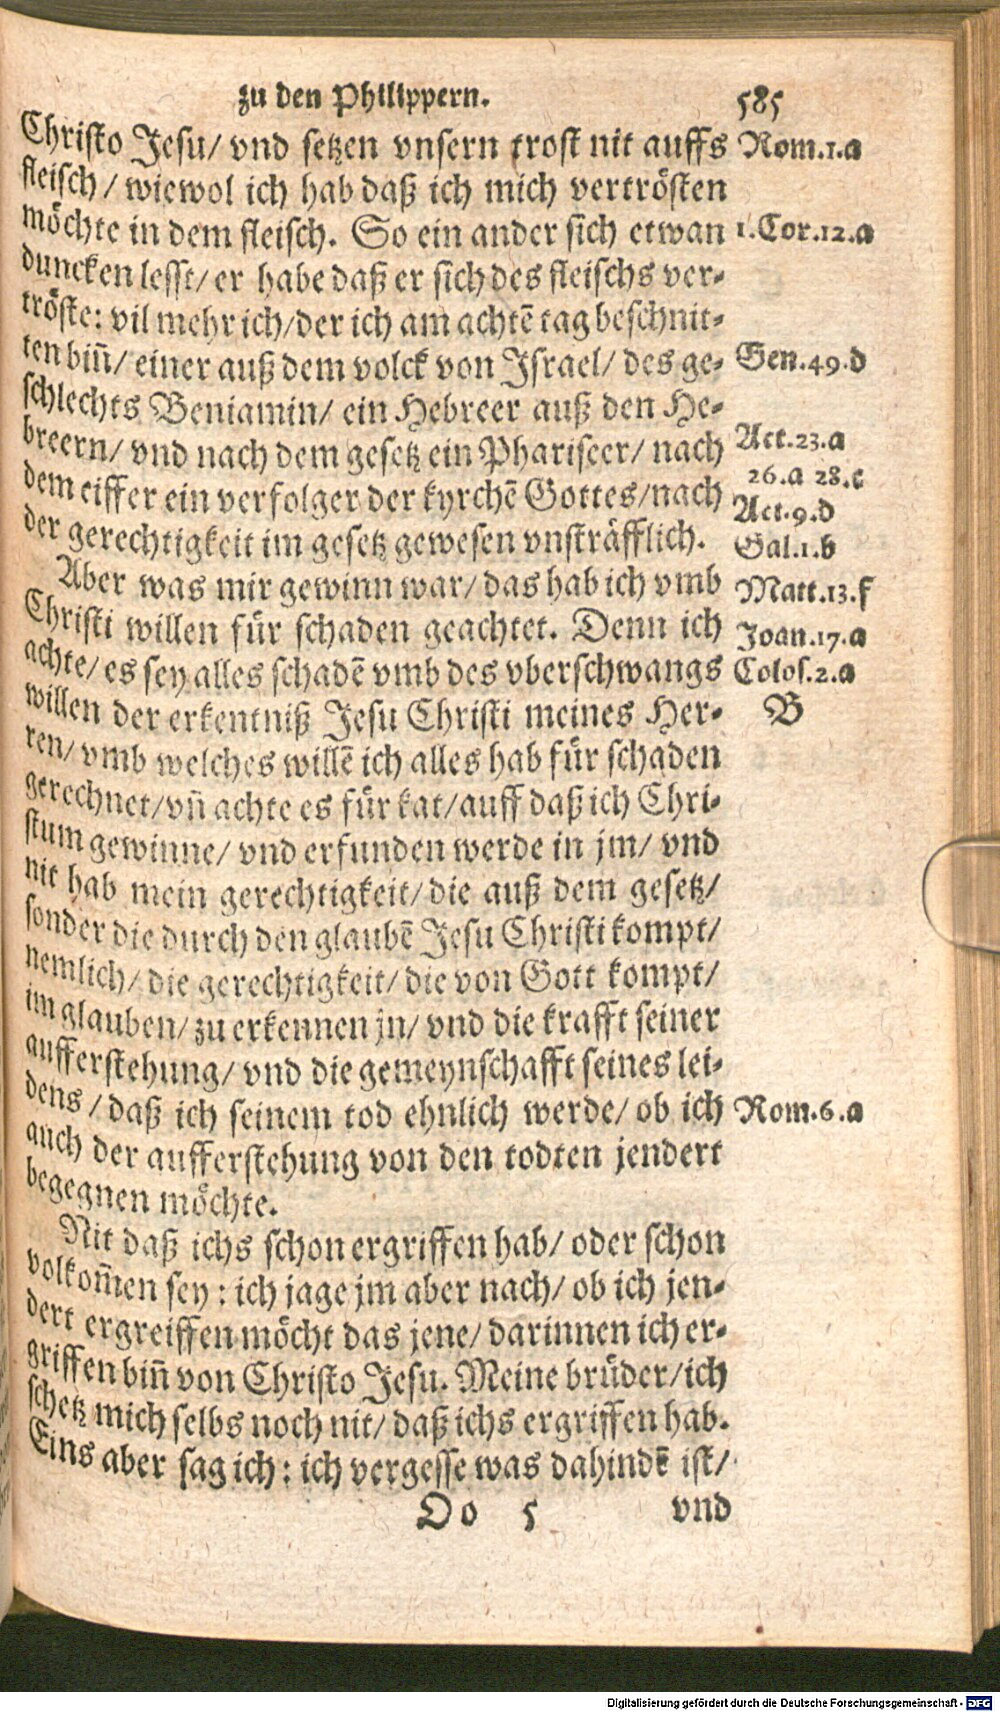 zu den Philippern. 585
Christo Jesu/ vnd setzen vnsern trost nit auffs
fleisch/ wiewol ich hab daß ich mich vertrösten
möchte in dem fleisch. So ein ander sich etwan
duncken lesst/ er habe daß er sich des fleischs ver⸗
tröste: vil mehr ich/ der ich am achtē tag beschnit⸗
ten biñ/ einer auß dem volck von Israel/ des ge⸗
schlechts Beniamin/ ein Hebreer auß den He⸗
breern/ vnd nach dem gesetz ein Phariseer/ nach
dem eiffer ein verfolger der kyrchē Gottes/ nach
der gerechtigkeit im gesetz gewesen vnsträfflich.
Aber was mir gewinn war/ das hab ich vmb
Christi willen für schaden geachtet. Denn ich
achte/ es sey alles schadē vmb des vberschwangs
willen der erkentniß Jesu Christi meines Her⸗
ren/ vmb welches willē ich alles hab für schaden
gerechnet/ vñ achte es für kat/ auff daß ich Chri⸗
stum gewinne/ vnd erfunden werde in jm/ vnd
nit hab mein gerechtigkeit/ die auß dem gesetz/
sonder die durch den glaubē Jesu Christi kompt/
nemlich/ die gerechtigkeit/ die von Gott kompt/
im glauben/ zu erkennen jn/ vnd die krafft seiner
aufferstehung/ vnd die gemeynschafft seines lei⸗
dens/ daß ich seinem tod ehnlich werde/ ob ich
auch der aufferstehung von den todten jendert
begegnen möchte.
Nit daß ichs schon ergriffen hab/ oder schon
volkom̃en sey: ich jage jm aber nach/ ob ich jen⸗
dert ergreiffen möcht das jene/ darinnen ich er⸗
griffen biñ von Christo Jesu. Meine brüder/ ich
schetz mich selbs noch nit/ daß ichs ergriffen hab.
Eins aber sag ich: ich vergesse was dahindē ist/
Oo 5 vnd
Rom.1.a
1.Cor.12.a
Gen.49.d
Act.23.a
26.a 28.c
Act.9.d
Gal.1.b
Matt.13.f
Joan.17.a
Colos.2.a
B
Rom.6.a
Digitalisierung gefördert durch die Deutsche Forschungsgemeinschaft - DFG